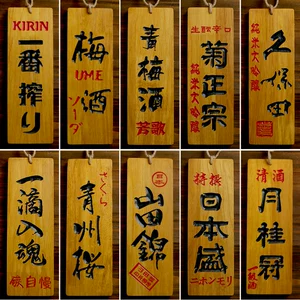 KIRIN
一番搾り
梅酒
UME
ソーダ
青梅酒
芳歌
生酛辛口
菊正宗
純米大吟醸
久保田
純米大吟醸
一滴入魂
蔵自慢
さくら
青州桜
山田錦
特撰
日本盛
ニホンモリ
清酒
月桂冠